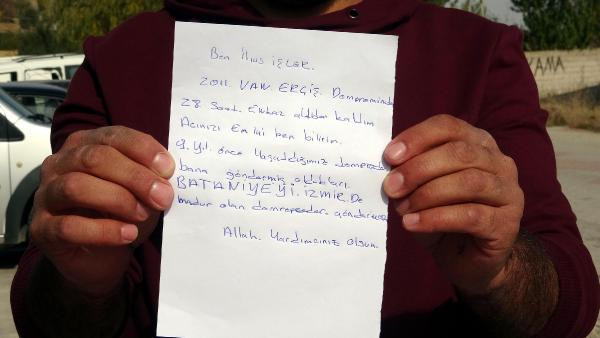 Ben İlyas İŞLER.
2011. VAN. ERCİŞ. Depreminde
28 Saat. Enkaz altıda kaldım
Acınızı En iyi ben bilirim.
9. Yıl. önce Yaşadığımız depremde
bana göndermiş oldukları.
BATANİYEYİ. İZMİR. De
mağdur olan depremzedeye gönderiyorum
Allah. Yardımcınız olsun.
YAMA